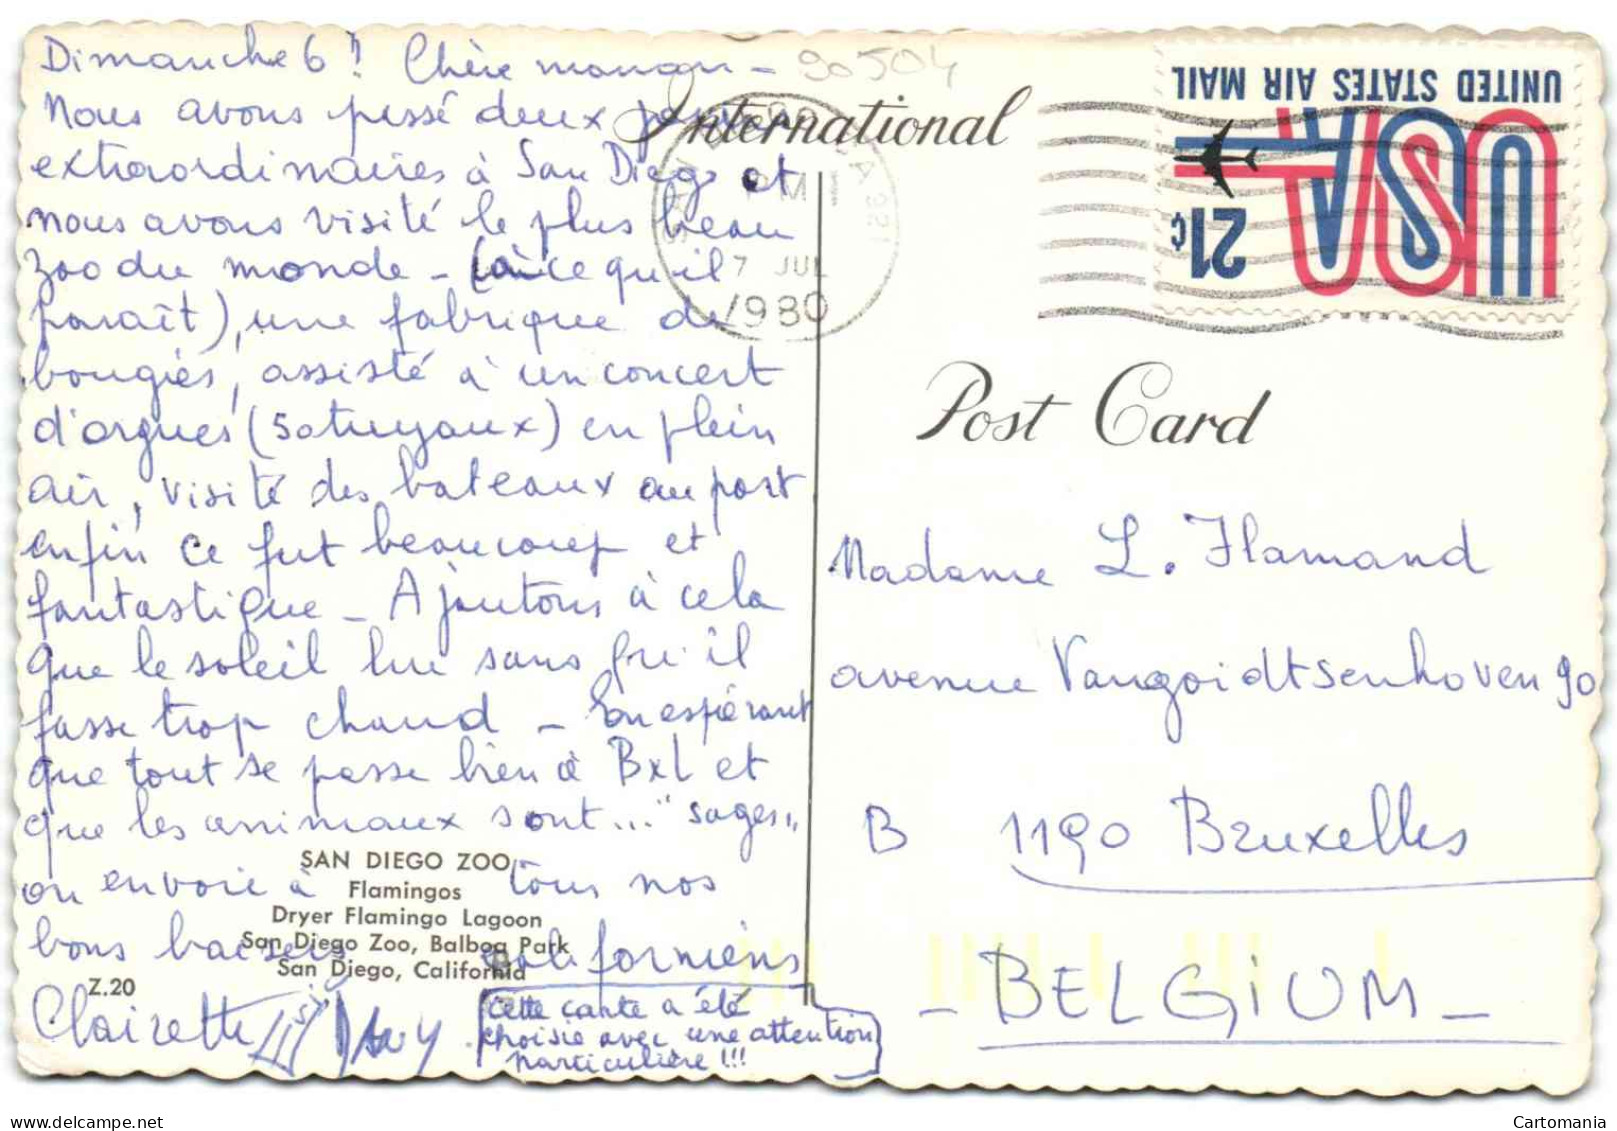 Dimanche 6 !! Chère maman -
Nous avons passé deux jours
extraordinaires à San Diego et
nous avons visité le plus beau
zoo du monde - (à ce qu'il
paraît), une fabrique de
bougies, assisté à un concert
d'orgues (50 tuyaux) en plein
air, visité des bateaux au port
enfin ce fut beaucoup et
fantastique - Ajoutons à cela
que le soleil lui sans qu'il
fasse trop chaud - En espérant
que tout se passe bien à Bxl et
que les animaux sont... "sages"
on envoie à tous nos
bons baisers californiens
Clairette
Cette carte a été
choisie avec une attention
particulière !!!
SAN DIEGO ZOO
Flamingos
Dryer Flamingo Lagoon
San Diego Zoo, Balboa Park
San Diego, California
Z.20
90504
International
Post Card
PM
7 JUL
1980
UNITED STATES AIR MAIL
USA
21¢
Madame L. Flamand
avenue Vangoidtsenhoven 90
B 1190 Bruxelles
- BELGIUM -
Cartomania